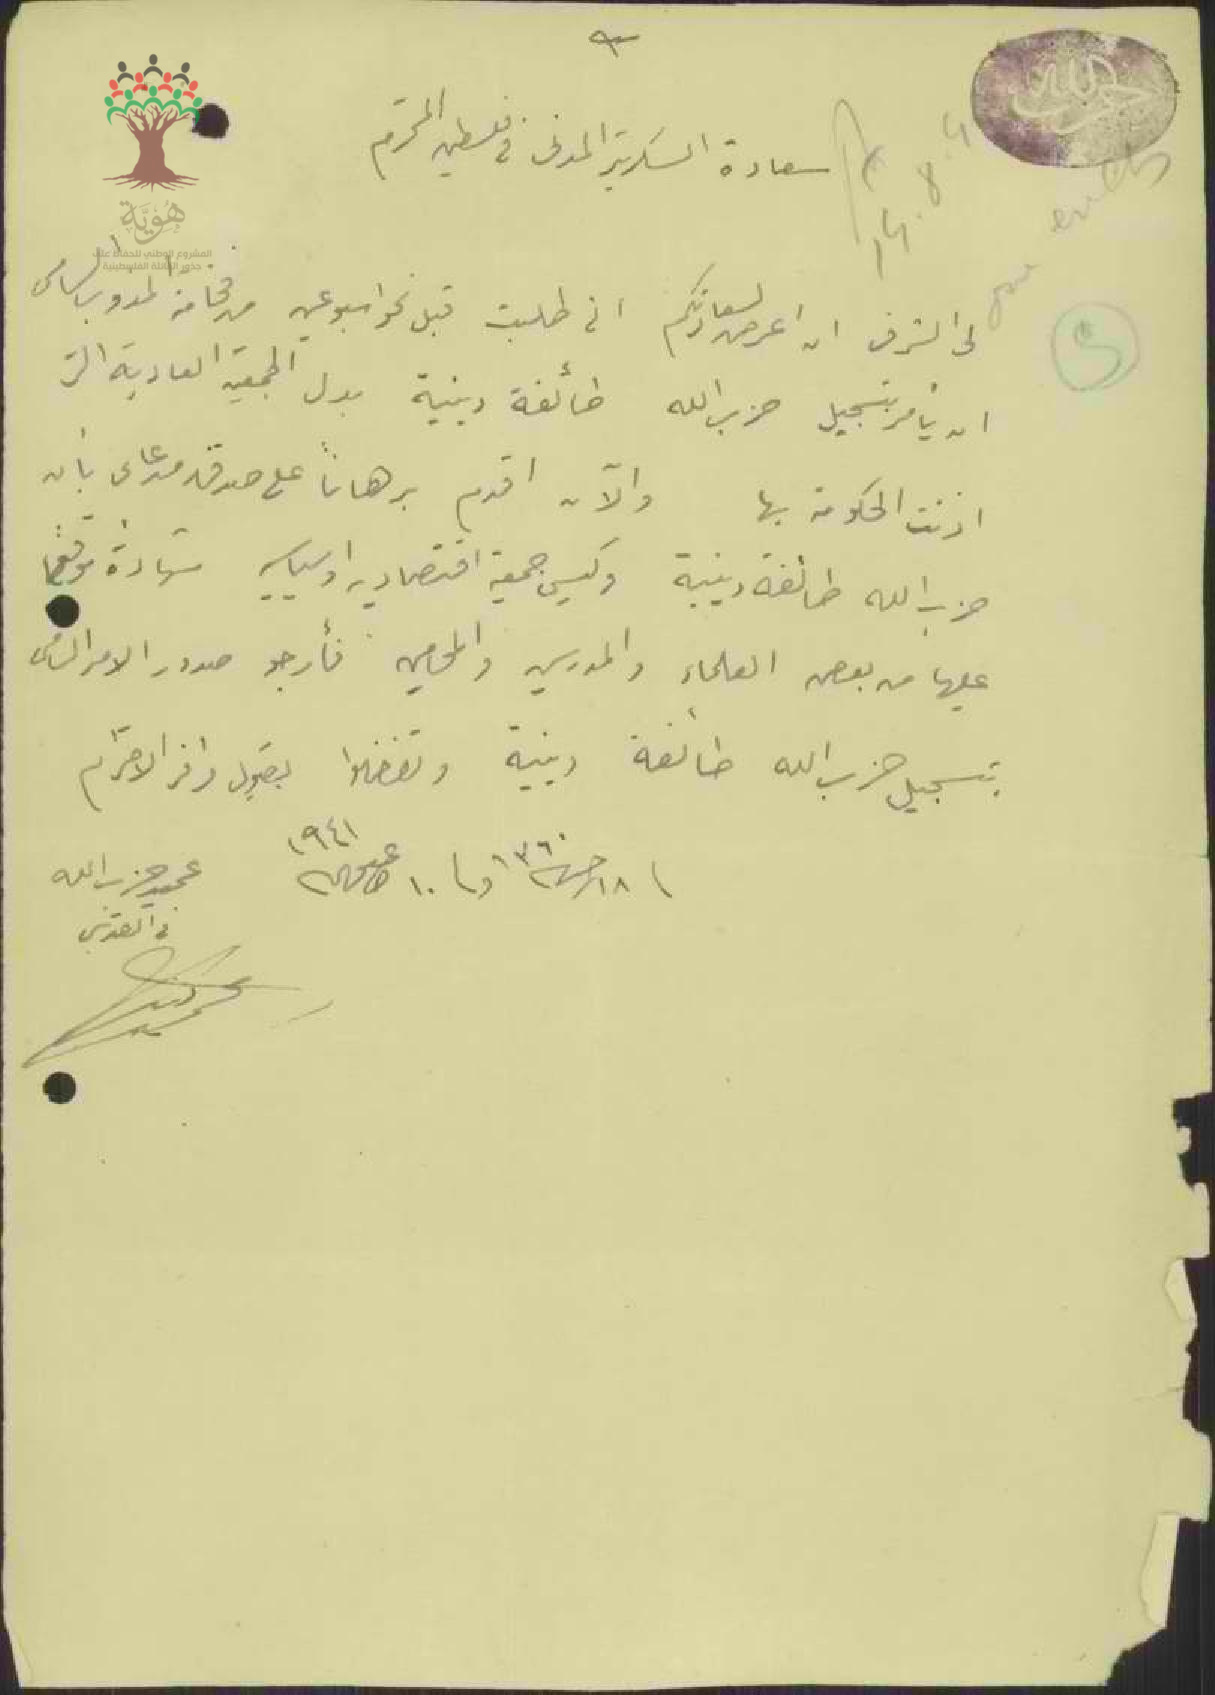 حزب الله
سعادة السكرتير المدني في فلسطين المحترم
هُوِيَّة
المشروع الوطني للحفاظ على
جذور العائلة الفلسطينية
لي الشرف ان اعرض لسعادتكم اني طلبت قبل نحو اسبوعين من فخامة المندوب السامي
ان يأمر بتسجيل حزب الله طائفة دينية بدل الجمعية العادية التي
اذنت الحكومة بها والآن اقدم برهاناً على صدق مدعاي بأن
حزب الله طائفة دينية وليس جمعية اقتصادية او سياسية شهادة موقعاً
عليها من بعض العلماء والمدرسين والمحامين فأرجو صدور الامر السامي
بتسجيل حزب الله طائفة دينية وتفضلوا بقبول وافر الاحترام
١٨ ١٣٦٠ و ١٠ ١٩٤١
عميد حزب الله
في القدس